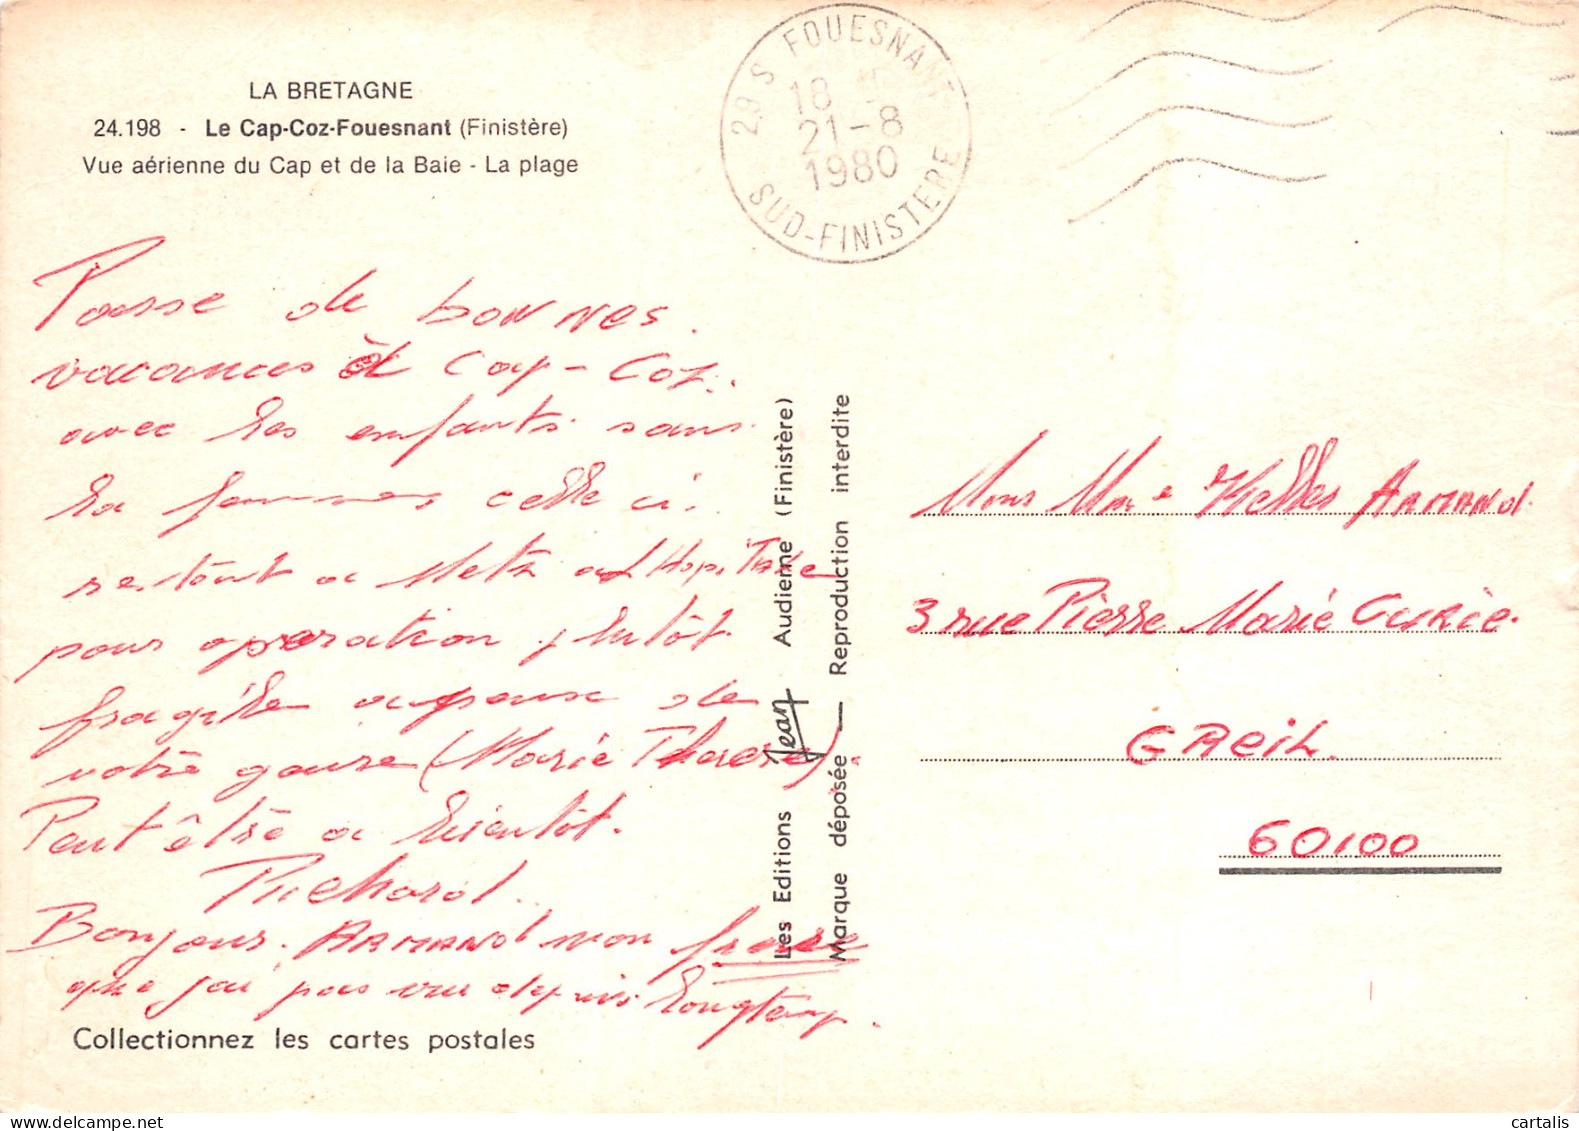 LA BRETAGNE
24.198 - Le Cap-Coz-Fouesnant (Finistère)
Vue aérienne du Cap et de la Baie - La plage
29 S FOUESNANT
18
21-8
1980
SUD-FINISTERE
Passe de bonnes
vacances à Cap-Coz.
avec les enfants sans
la femmes celle ci.
restant a Metz a l Hopitale
pour operation plutôt
fragile
votre (Marie Therese).
Peut être a bientôt.
Richard.
Bonjour. ARMAND mon frere
que j'ai pas vue depuis longtemp.
Collectionnez les cartes postales
Les Editions Jean Audierne (Finistère)
Marque déposée — Reproduction interdite
Mons Mme ARMAND.
3 rue Pierre Marie CURIE.
CREIL.
60100
cartalis